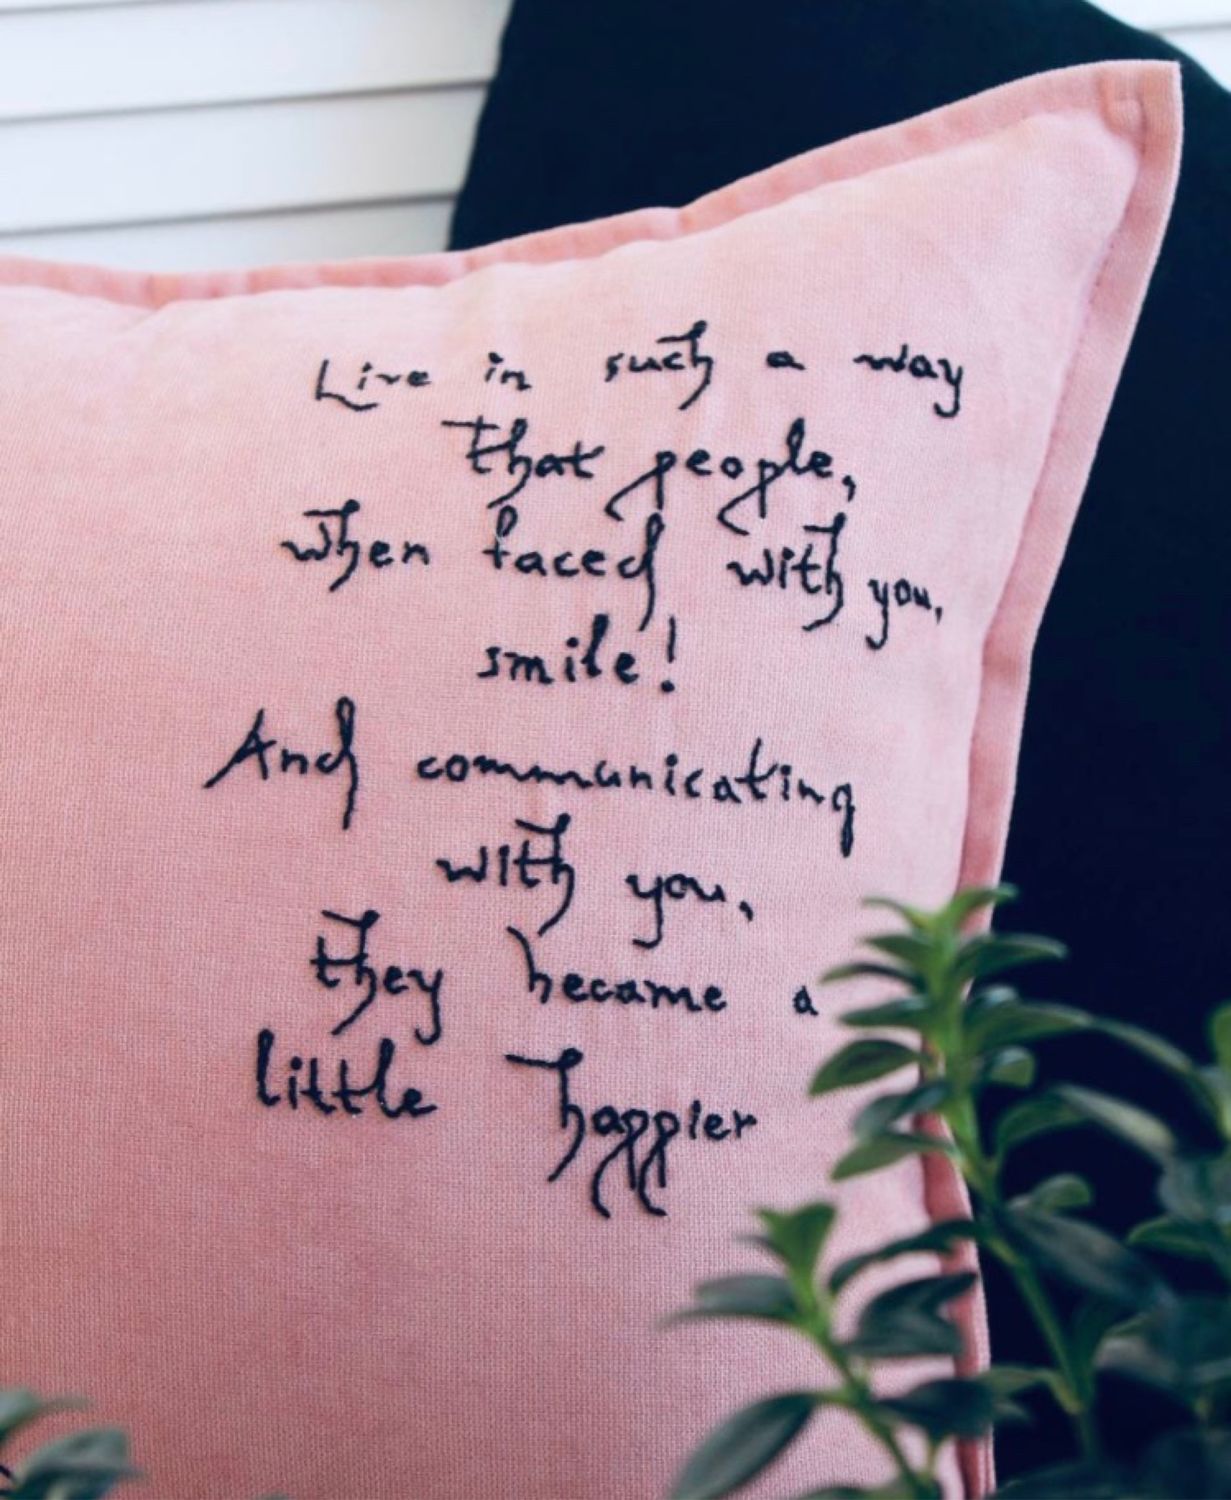 Live in such a way
that people,
when faced with you,
smile!
And communicating
with you,
they became a
little happier